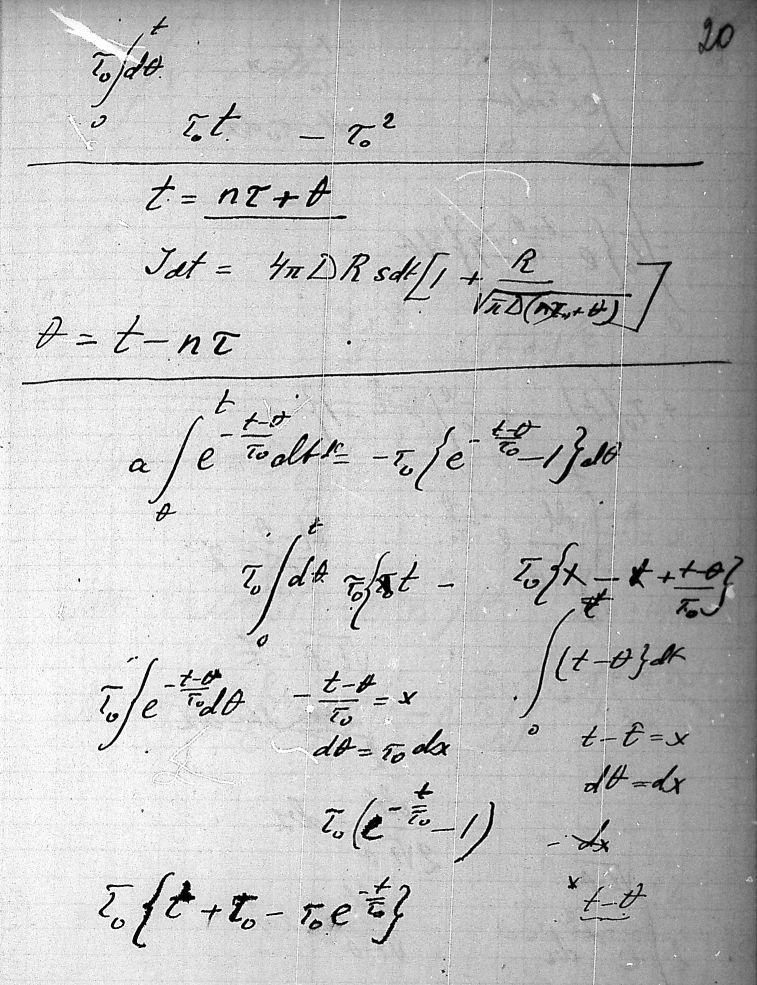 20
τ₀∫₀ᵗ dθ
τ₀t − τ₀²
t = nτ + θ
Jdt = 4πDRsdt[1 + R/√(πD(nτ₀+θ))]
θ = t − nτ
a∫ e^(−(t−θ)/τ₀) dt = −τ₀{e^(−(t−θ)/τ₀) − 1}dθ
τ₀∫₀ᵗ dθ τ₀{t − τ₀{x − t + (t−θ)/τ₀}
τ₀∫e^(−(t−θ)/τ₀)dθ − (t−θ)/τ₀ = x ∫₀ᵗ(t−θ}dt
dθ = τ₀dx t − t = x
dθ = dx
τ₀(e^(−t/τ₀) − 1) − dx
τ₀{t + τ₀ − τ₀e^(−t/τ₀)} t−θ